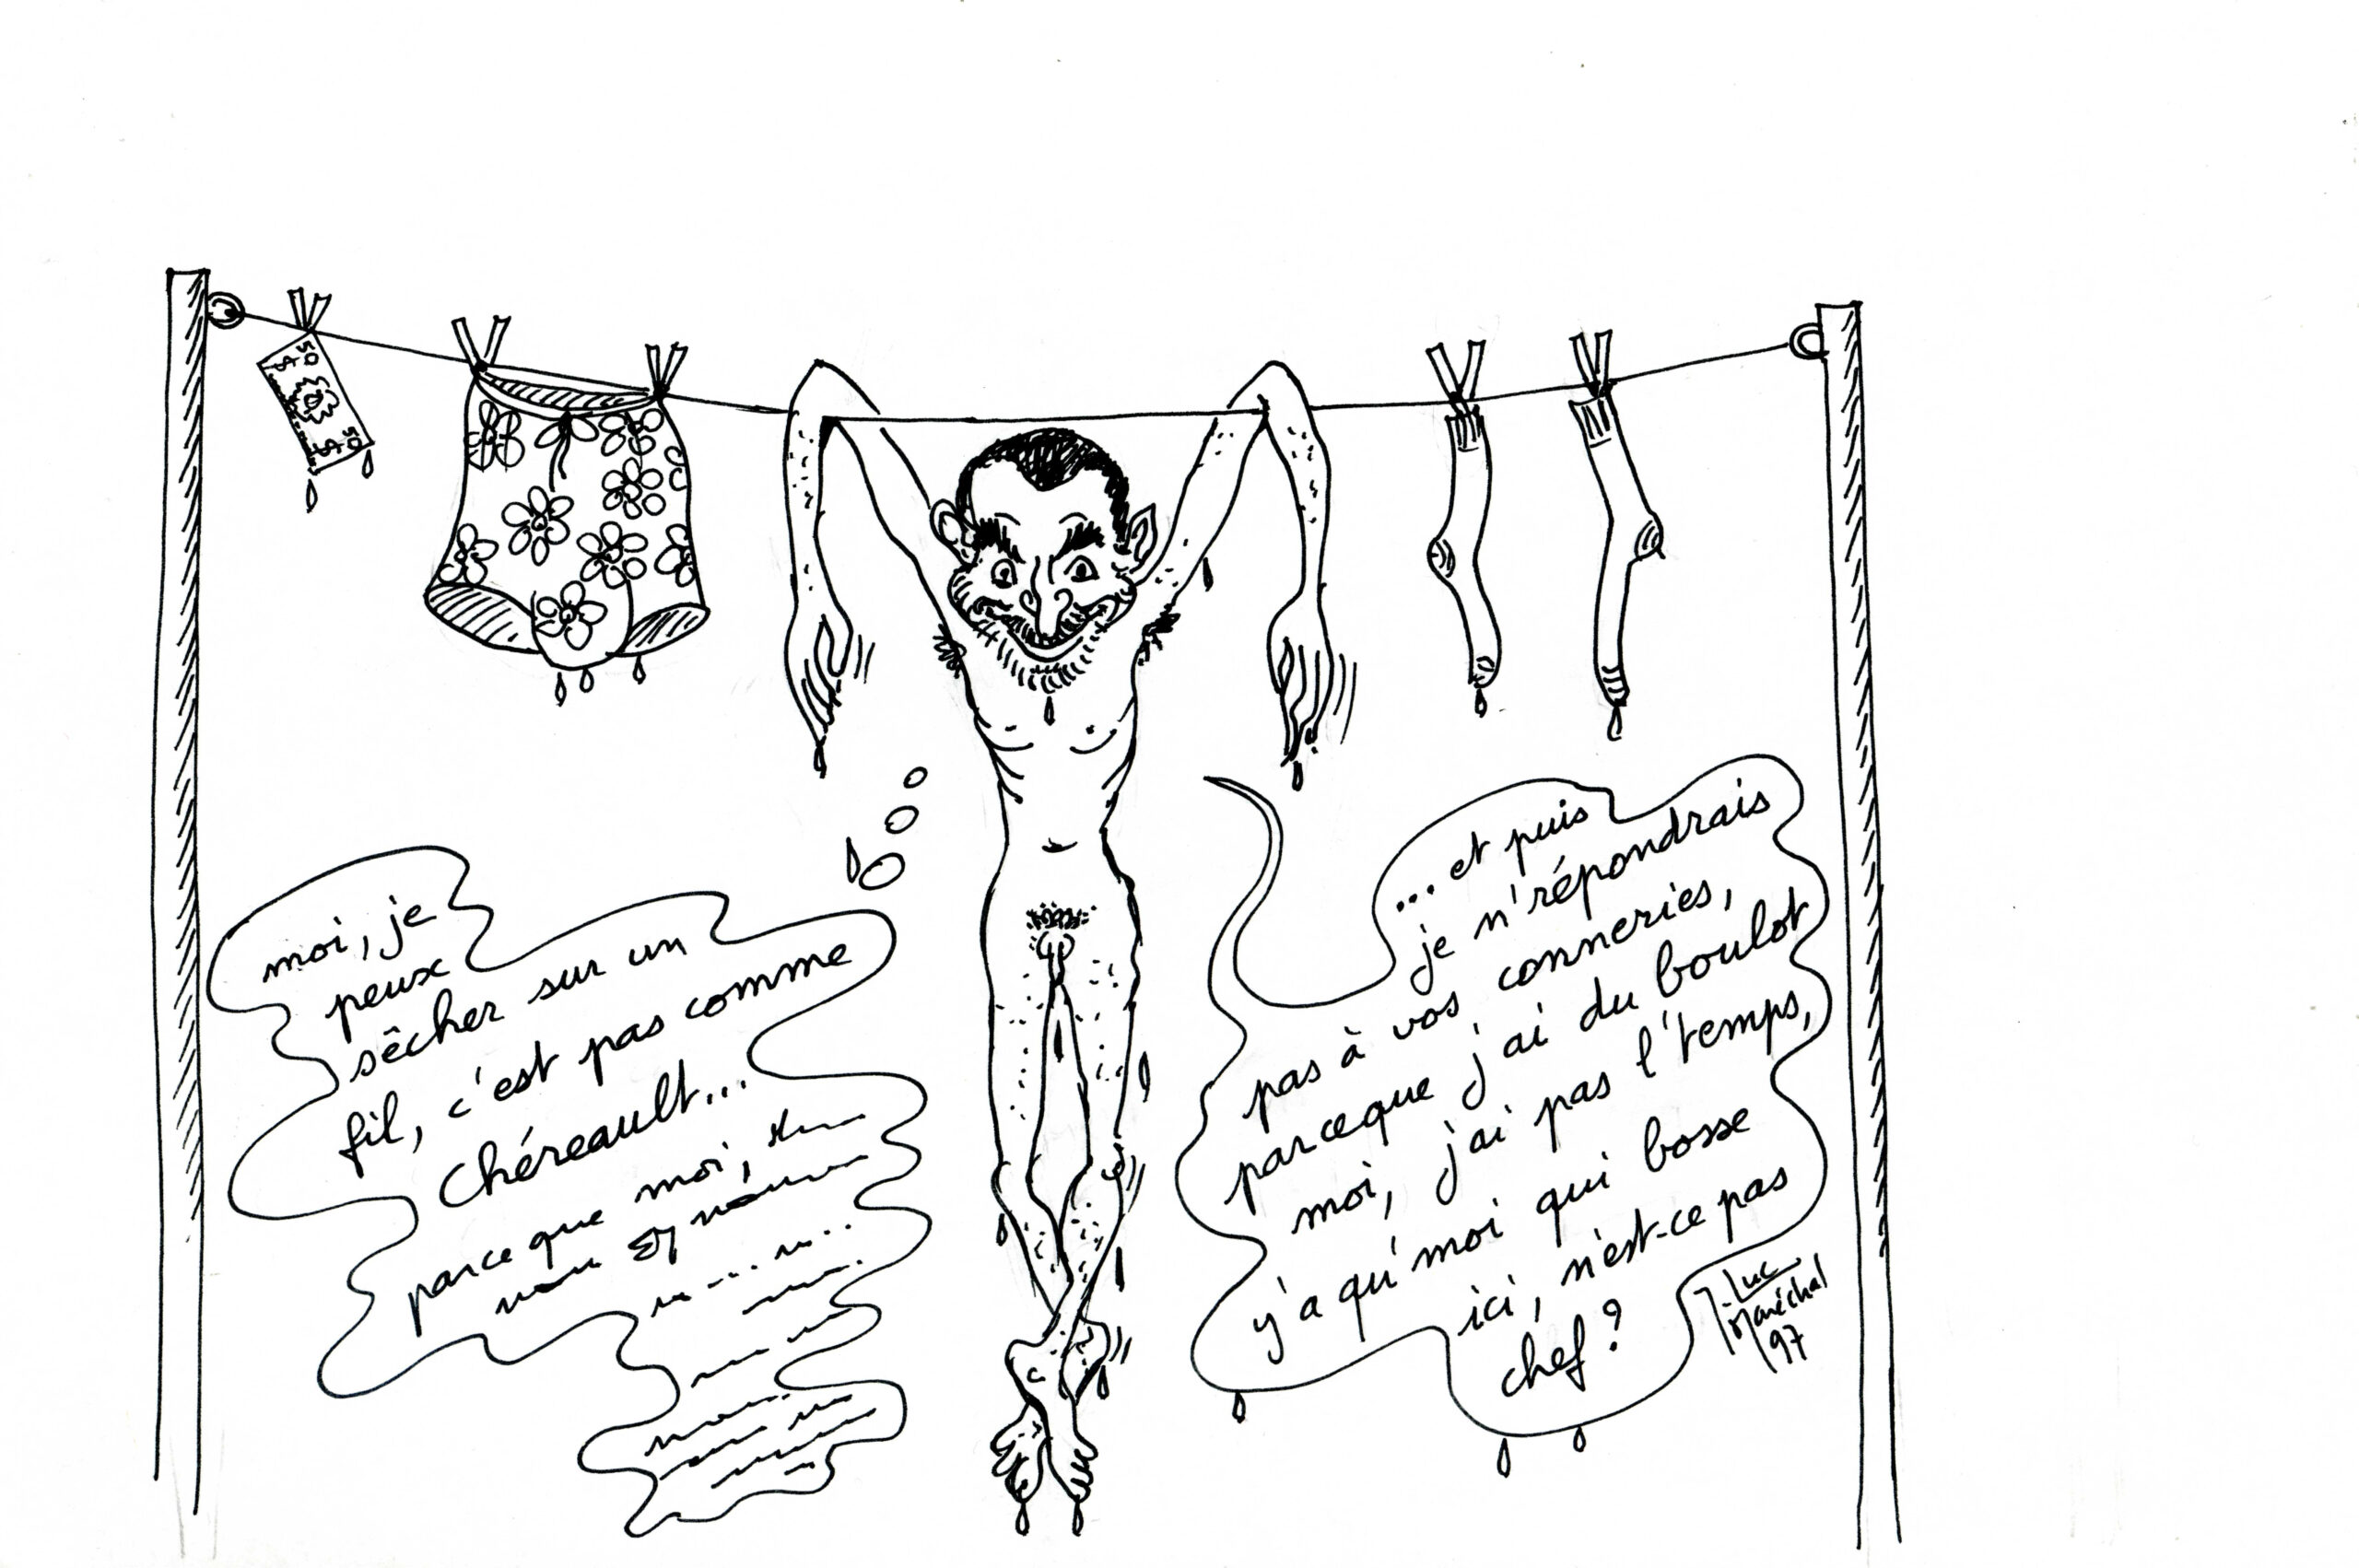 50
50
moi, je
peux
sêcher sur un
fil, c'est pas comme
Chéreault...
parce que moi,
...et puis
je n'répondrais
pas à vos conneries,
parceque j'ai du boulot
moi, j'ai pas l'temps,
y'a qu'moi qui bosse
ici, n'est-ce pas
chef ?
J-Luc
Maréchal
97